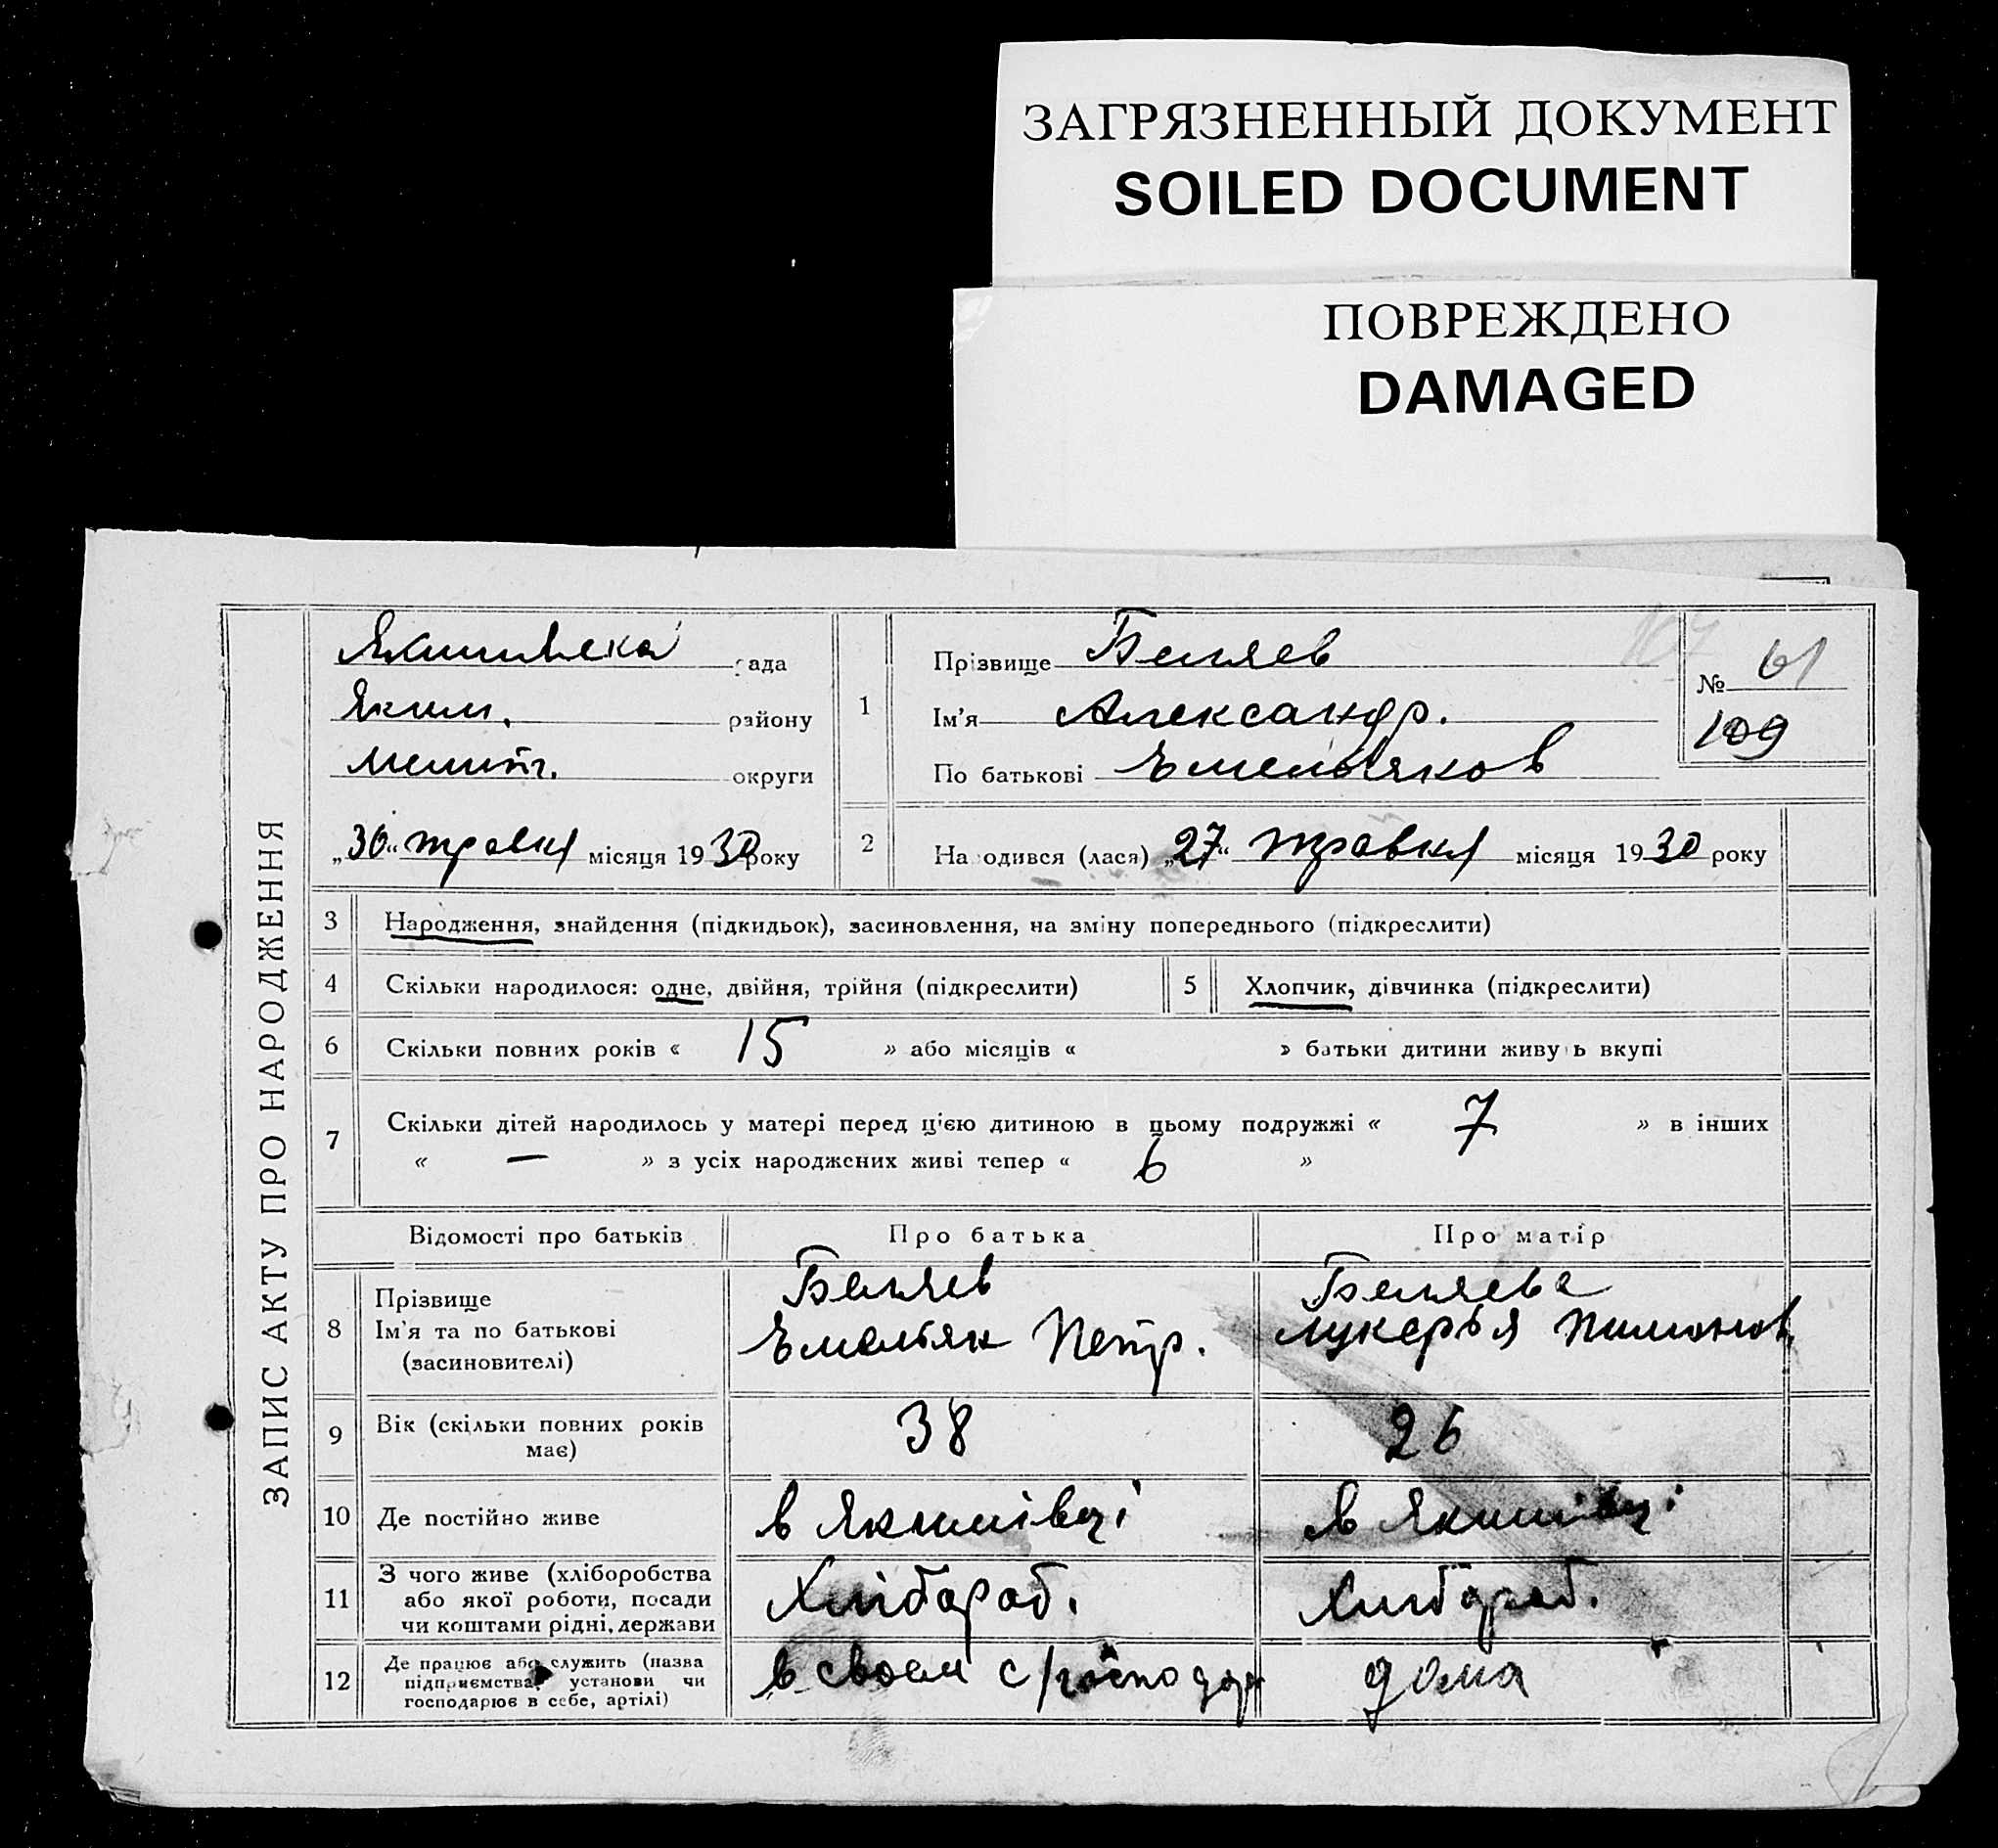 ЗАГРЯЗНЕННЫЙ ДОКУМЕНТ
SOILED DOCUMENT
ПОВРЕЖДЕНО
DAMAGED
ЗАПИС АКТУ ПРО НАРОДЖЕННЯ
Якимівска рада
Яким. району
Мелит. округи
„30“ травня місяця 1930 року
1
Прізвище Беляев
Ім'я Александр.
По батькові Емельянов
№ 61
109
2 На одився (лася) „27“ травня місяця 1930 року
3 Народження, знайдення (підкидьок), засиновлення, на зміну попереднього (підкреслити)
4 Скільки народилося: одне, двійня, трійня (підкреслити) 5 Хлопчик, дівчинка (підкреслити)
6 Скільки повних років « 15 » або місяців « » батьки дитини живу ь вкупі
7 Скільки дітей народилось у матері перед ц'єю дитиною в цьому подружжі « 7 » в інших
« — » з усіх народжених живі тепер « 6 »
Відомості про батьків Про батька Про матір
8
Прізвище Беляев Беляева
Ім'я та по батькові Емельян Петр. Лукерья Пимонов
(засиновителі)
9 Вік (скільки повних років має) 38 26
10 Де постійно живе в Якимівці в Якимівці
11 З чого живе (хліборобства
або якої роботи, посади
чи коштами рідні, держави
Хлібороб. Хлібороб.
12 Де працює або служить (назва
підприємства, установи чи
господарює в себе, артілі)
в своем с/господар дома